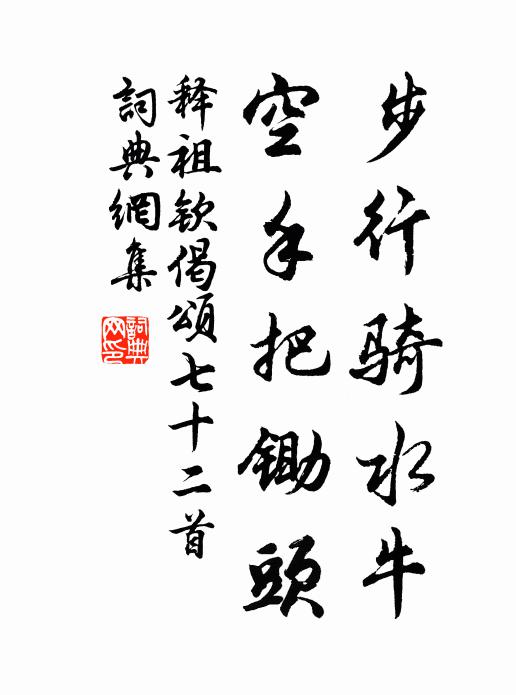 步行骑水牛
空手把锄頭
释祖钦偈頌七十二首
詞典網集
詞典网印